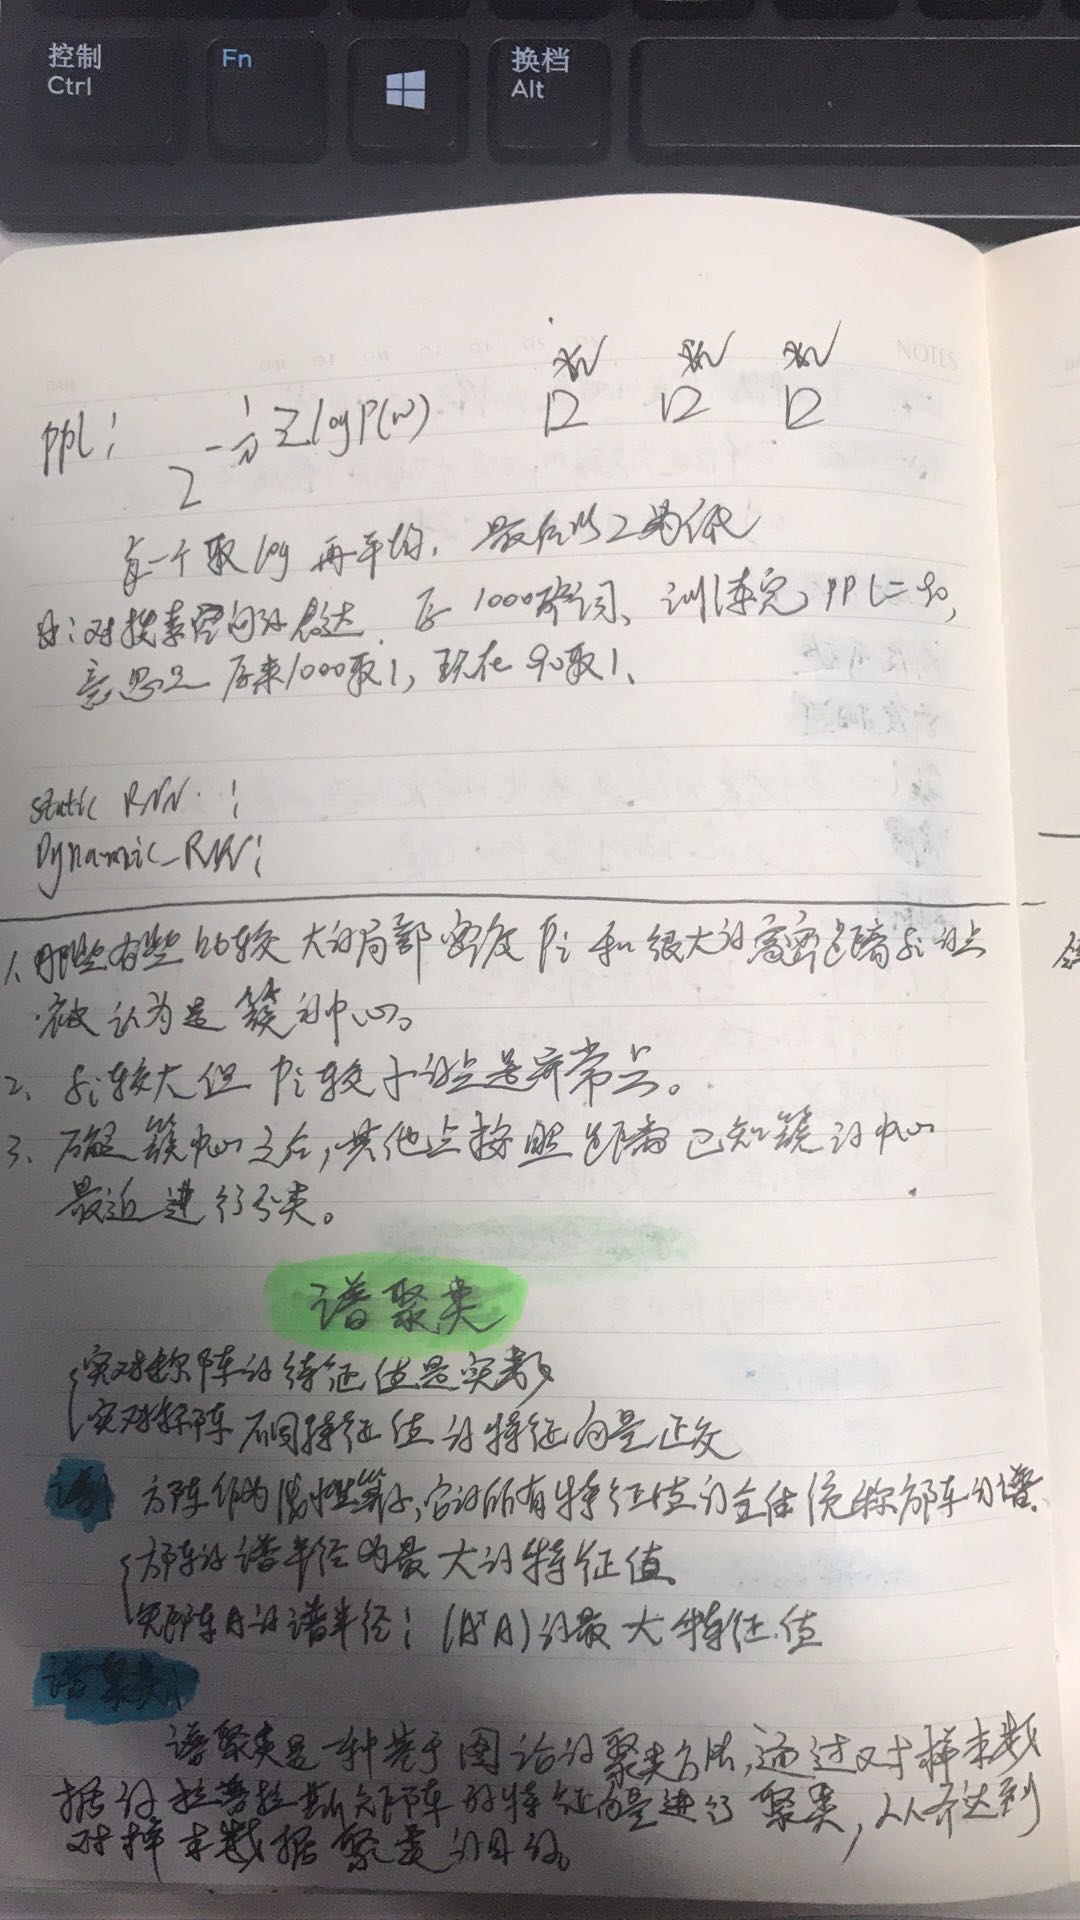 控制
Ctrl
Fn
换档
Alt
NOTES
ppl: 2^{-\frac{1}{n}Σlog P(w)}
每一个取log 再平均, 最后以2为底
对搜索空间的表达. 1000个词、训练完, PPL=90,
意思是 原来1000取1, 现在90取1、
static RNN :
Dynamic_RNN:
1、那些有些比较大的局部密度ρi 和很大的高密距离δi的点
被认为是簇的中心。
2、δi较大但ρi较小的点是异常点。
3、确定簇中心之后,其他点按照距离已知簇的中心
最近进行分类。
谱聚类
实对称阵的特征值是实数
实对称阵不同特征值的特征向量正交
谱: 方阵作为线性算子,它的所有特征值的全体统称方阵的谱、
方阵的谱半径为最大的特征值
矩阵A的谱半径: (AᵀA)的最大特征值
谱聚类:
谱聚类是一种基于图论的聚类方法,通过对样本数
据的拉普拉斯矩阵的特征向量进行聚类,从而达到
对样本数据聚类的目的。